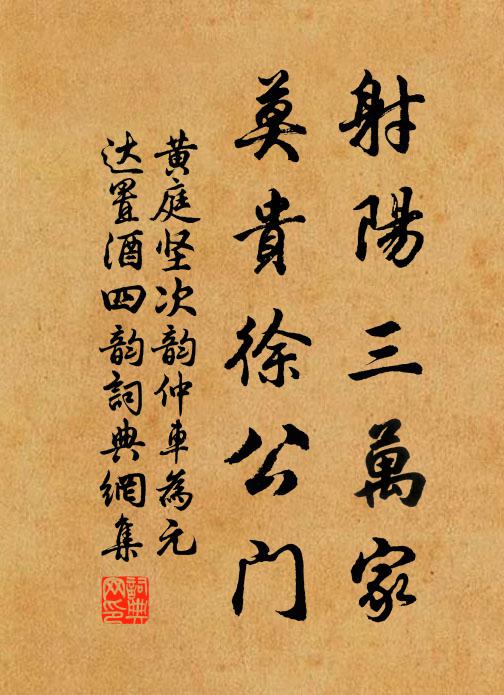 射陽三萬家
莫貴徐公门
黄庭坚次韵仲車為元
达置酒四韵詞典網集
詞典网印